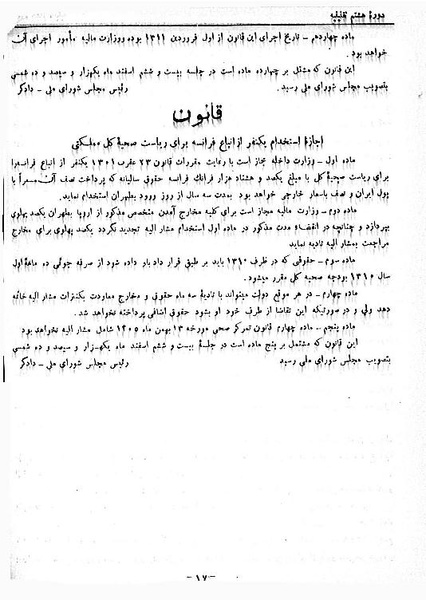 دورهٔ هفتم تقنینیه
ماده چهاردهم – تاریخ اجرای این قانون از اول فروردین ۱۳۱۱ بوده ووزارت مالیه مأمور اجرای آن
خواهد بود.
این قانون که مشتمل بر چهارده ماده است در جلسه بیست و ششم اسفند ماه یکهزار و سیصد و ده شمسی
بتصویب مجلس شورای ملی رسید. رئیس مجلس شورای ملی – دادگر
قانون
اجازهٔ استخدام یکنفر از اتباع فرانسه برای ریاست صحیهٔ کل مملکتی
ماده اول – وزارت داخله مجاز است با رعایت مقررات قانون ۲۳ عقرب ۱۳۰۱ یکنفر از اتباع فرانسه را
برای ریاست صحیهٔ کل با مبلغ یکصد و هشتاد هزار فرانک فرانسه حقوق سالیانه که پرداخت نصف آن
پول ایران و نصف باسعار خارجی خواهد بود بمدت سه سال از روز ورود بطهران استخدام نماید.
ماده دوم – وزارت مالیه مجاز است برای کلیه مخارج آمدن متخصص مذکور از اروپا بطهران یکصد پهلوی
بپردازد و چنانچه در انقضاء مدت مذکور در ماده اول استخدام مشار الیه تجدید نگردد یکصد پهلوی برای مخارج
مراجعت بمشار الیه تادیه نماید
ماده سوم – حقوقی که در ظرف ۱۳۱۰ باید بر طبق قرار داد باو داده شود از صرفه جوئی ده ماههٔ اول
سال ۱۳۱۰ بودجه صحیه کل مقرر میشود.
ماده چهارم – در هر موقع دولت میتواند با تادیهٔ سه ماه حقوقی و مخارج معاودت بکنترات مشار الیه خاتمه
دهد ولی در صورتیکه این تقاضا از طرف خود او بشود حقوق اضافی پرداخته نخواهد شد.
ماده پنجم – ماده چهارم قانون تمرکز صحی مورخه ۱۳ بهمن ماه شامل مشار الیه نخواهد بود
این قانون که مشتمل بر پنج ماده است در جلسهٔ بیست و ششم اسفند ماه یکهزار و سیصد و ده شمسی
بتصویب مجلس شورای ملی رسید رئیس مجلس شورای ملی – دادگر
–۱۷–